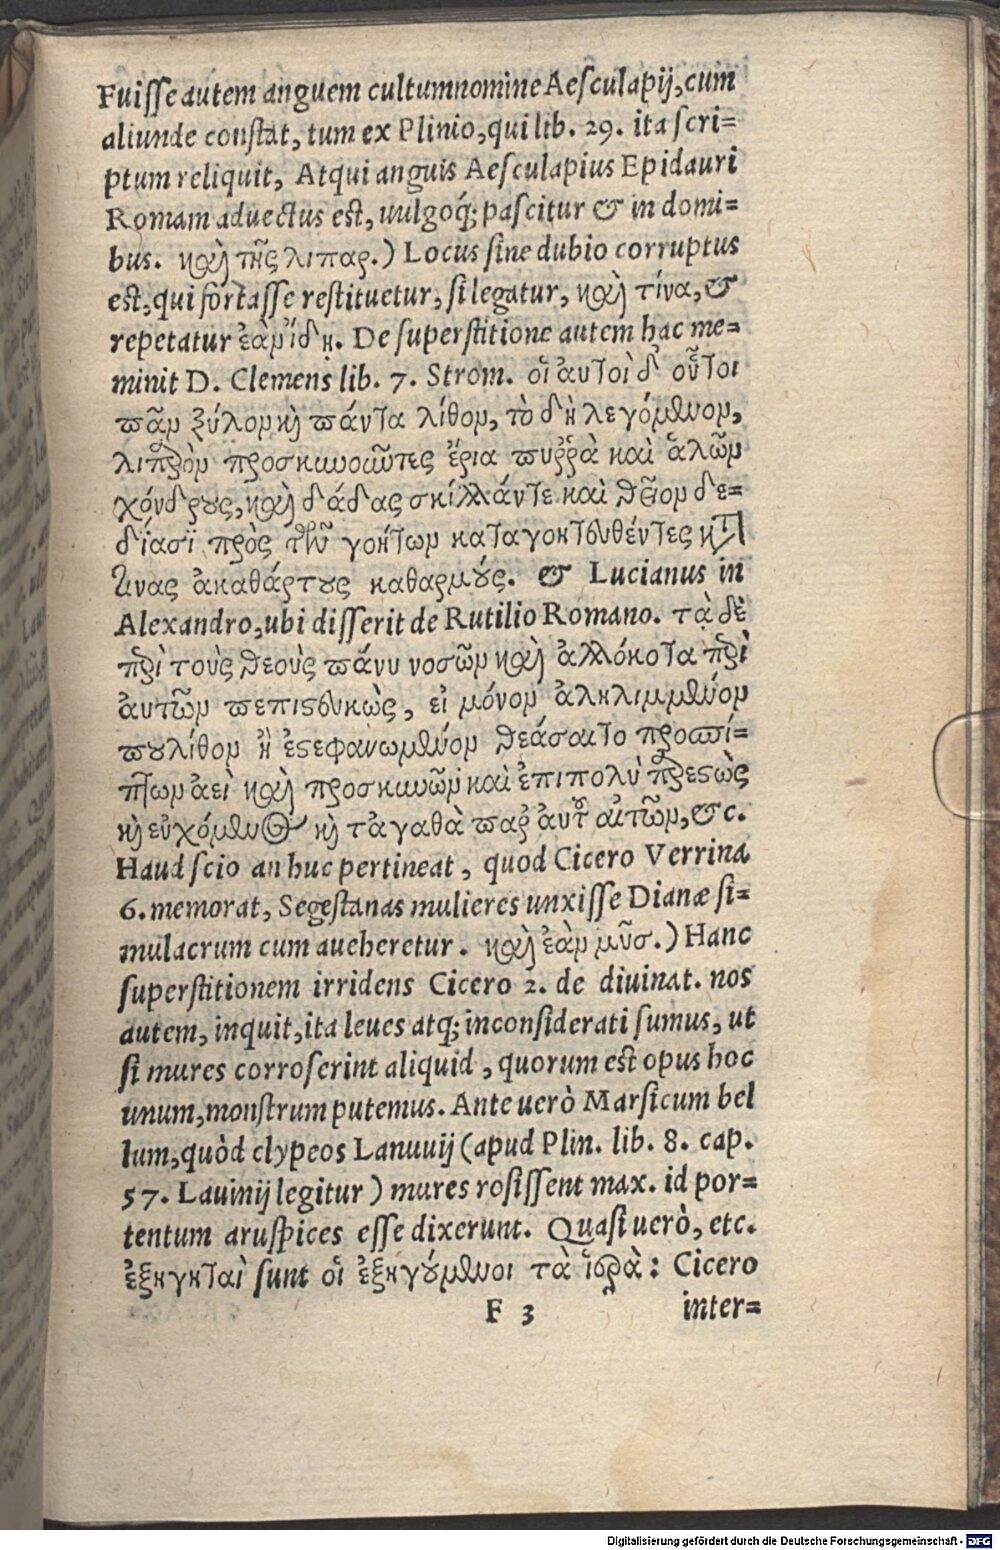 Fuisse autem anguem cultumnomine Aesculapij, cum
aliunde constat, tum ex Plinio, qui lib. 29. ita scri=
ptum reliquit, Atqui anguis Aesculapius Epidauri
Romam aduectus est, uulgoq́; pascitur & in domi=
bus. καὶ τῆς λιπαρ.) Locus sine dubio corruptus
est, qui fortasse restituetur, si legatur, καὶ τίνα, &
repetatur ἐὰν ἴδῃ. De superstitione autem hac me=
minit D. Clemens lib. 7. Strom. οἱ ἀυτοὶ δ' οὗτοι
πᾶν ξύλον κὴ πάντα λίθον, τὸ δὴ λεγόμενον,
λιπαρὸν προσκυνοῦντες ἔρια πυῤῥὰ καὶ ἁλῶν
χόνδρους, καὶ δᾴδας σκίλλάντε καὶ θεῖον δε=
δίασι πρὸς τῶν γοήτων καταγοητευθέντες κατά
τινας ἀκαθάρτους καθαρμούς. & Lucianus in
Alexandro, ubi disserit de Rutilio Romano. τὰ δὲ
περὶ τοὺς θεοὺς πάνυ νοσῶν καὶ ἀλλόκοτα περὶ
ἀυτῶν πεπιστευκὼς, εἰ μόνον ἀληλιμμένον
που λίθον ἢ ἐστεφανωμένον θεάσαιτο προσπί=
πτων ἀεὶ καὶ προσκυνῶν καὶ ἐπιπολὺ παρεστὼς
κὴ εὐχόμενος κὴ τἀγαθὰ παρ' ἀυτοῦ αἰτῶν, &c.
Haud scio an huc pertineat, quod Cicero Verrina
6. memorat, Segestanas mulieres unxisse Dianæ si=
mulacrum cum aueheretur. καὶ ἐὰν μῦσ.) Hanc
superstitionem irridens Cicero 2. de diuinat. nos
autem, inquit, ita leues atq; inconsiderati sumus, ut
si mures corroserint aliquid, quorum est opus hoc
unum, monstrum putemus. Ante uerò Marsicum bel
lum, quòd clypeos Lanuuij (apud Plin. lib. 8. cap.
57. Lauinij legitur) mures rosissent max. id por=
tentum aruspices esse dixerunt. Quasi uerò, etc.
ἐξηγηταὶ sunt οἱ ἐξηγούμενοι τὰ ἱερὰ: Cicero
F 3 inter=
Digitalisierung gefördert durch die Deutsche Forschungsgemeinschaft - DFG